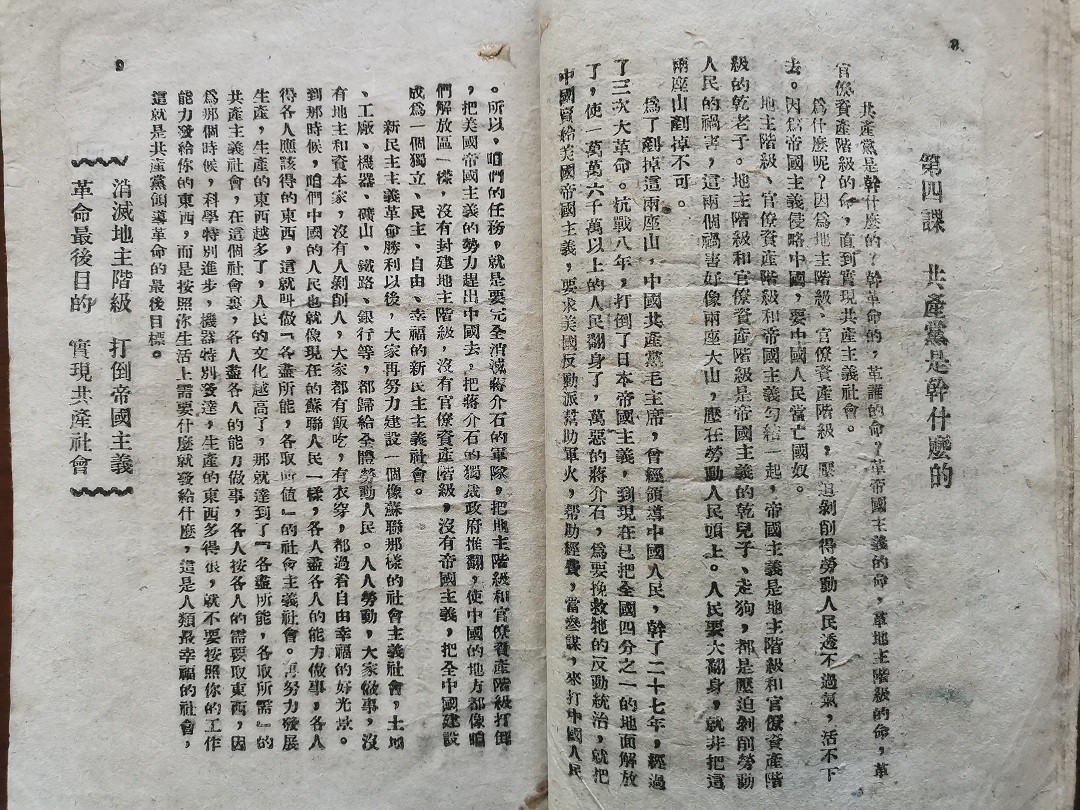 8
第四課　共產黨是幹什麼的
共產黨是幹什麼的？幹革命的，革誰的命？革帝國主義的命，革地主階級的命，革
官僚資產階級的命，直到實現共產主義社會。
爲什麼呢？因爲地主階級、官僚資產階級，壓迫剝削得勞動人民透不過氣，活不下
去。因爲帝國主義侵略中國，要中國人民當亡國奴。
地主階級、官僚資產階級和帝國主義勾結一起，帝國主義是地主階級和官僚資產階
級的乾老子。地主階級和官僚資產階級是帝國主義的乾兒子、走狗，都是壓迫剝削勞動
人民的禍害，這兩個禍害好像兩座大山，壓在勞動人民頭上。人民要大翻身，就非把這
兩座山剷掉不可。
爲了剷掉這兩座山，中國共產黨毛主席，曾經領導中國人民，幹了二十七年，經過
了三次大革命。抗戰八年，打倒了日本帝國主義，到現在已把全國四分之一的地面解放
了，使一萬萬六千萬以上的人民翻身了，萬惡的蔣介石，爲要挽救牠的反動統治，就把
中國賣給美國帝國主義，要求美國反動派幫助軍火，幫助經費，當參謀，來打中國人民
9
。所以，咱們的任務，就是要完全消滅蔣介石的軍隊，把地主階級和官僚資產階級打倒
，把美國帝國主義的勢力趕出中國去，把蔣介石的獨裁政府推翻，使中國的地方都像咱
們解放區一樣，沒有封建地主階級，沒有官僚資產階級，沒有帝國主義，把全中國建設
成爲一個獨立、民主、自由、幸福的新民主主義社會。
新民主主義革命勝利以後，大家再努力建設一個像蘇聯那樣的社會主義社會，土地
、工廠、機器、礦山、鐵路、銀行等，都歸給全體勞動人民。人人勞動，大家做事，沒
有地主和資本家，沒有人剝削人，大家都有飯吃，有衣穿，都過着自由幸福的好光景。
到那時候，咱們中國的人民也就像現在的蘇聯人民一樣，各人盡各人的能力做事，各人
得各人應該得的東西，這就叫做『各盡所能，各取所值』的社會主義社會。再努力發展
生產，生產的東西越多了，人民的文化越高了，那就達到了『各盡所能，各取所需』的
共產主義社會，在這個社會裏，各人盡各人的能力做事，各人按各人的需要取東西，因
爲那個時候，科學特別進步，機器特別發達，生產的東西多得很，就不要按照你的工作
能力發給你的東西，而是按照你生活上需要什麼就發給什麼，這是人類最幸福的社會，
這就是共產黨領導革命的最後目標。
消滅地主階級　打倒帝國主義
革命最後目的　實現共產社會